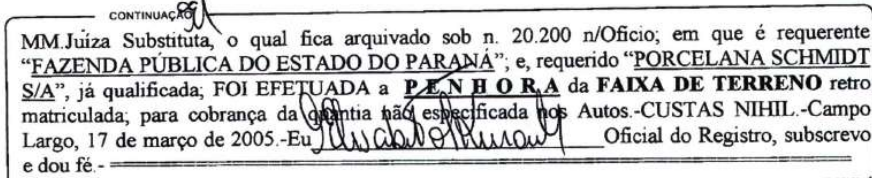 CONTINUAÇÃO
MM.Juíza Substituta, o qual fica arquivado sob n. 20.200 n/Ofício; em que é requerente
“FAZENDA PÚBLICA DO ESTADO DO PARANÁ”; e, requerido “PORCELANA SCHMIDT
S/A”, já qualificada; FOI EFETUADA a P E N H O R A da FAIXA DE TERRENO retro
matriculada; para cobrança da quantia não especificada nos Autos.-CUSTAS NIHIL.-Campo
Largo, 17 de março de 2005.-Eu Oficial do Registro, subscrevo
e dou fé.-